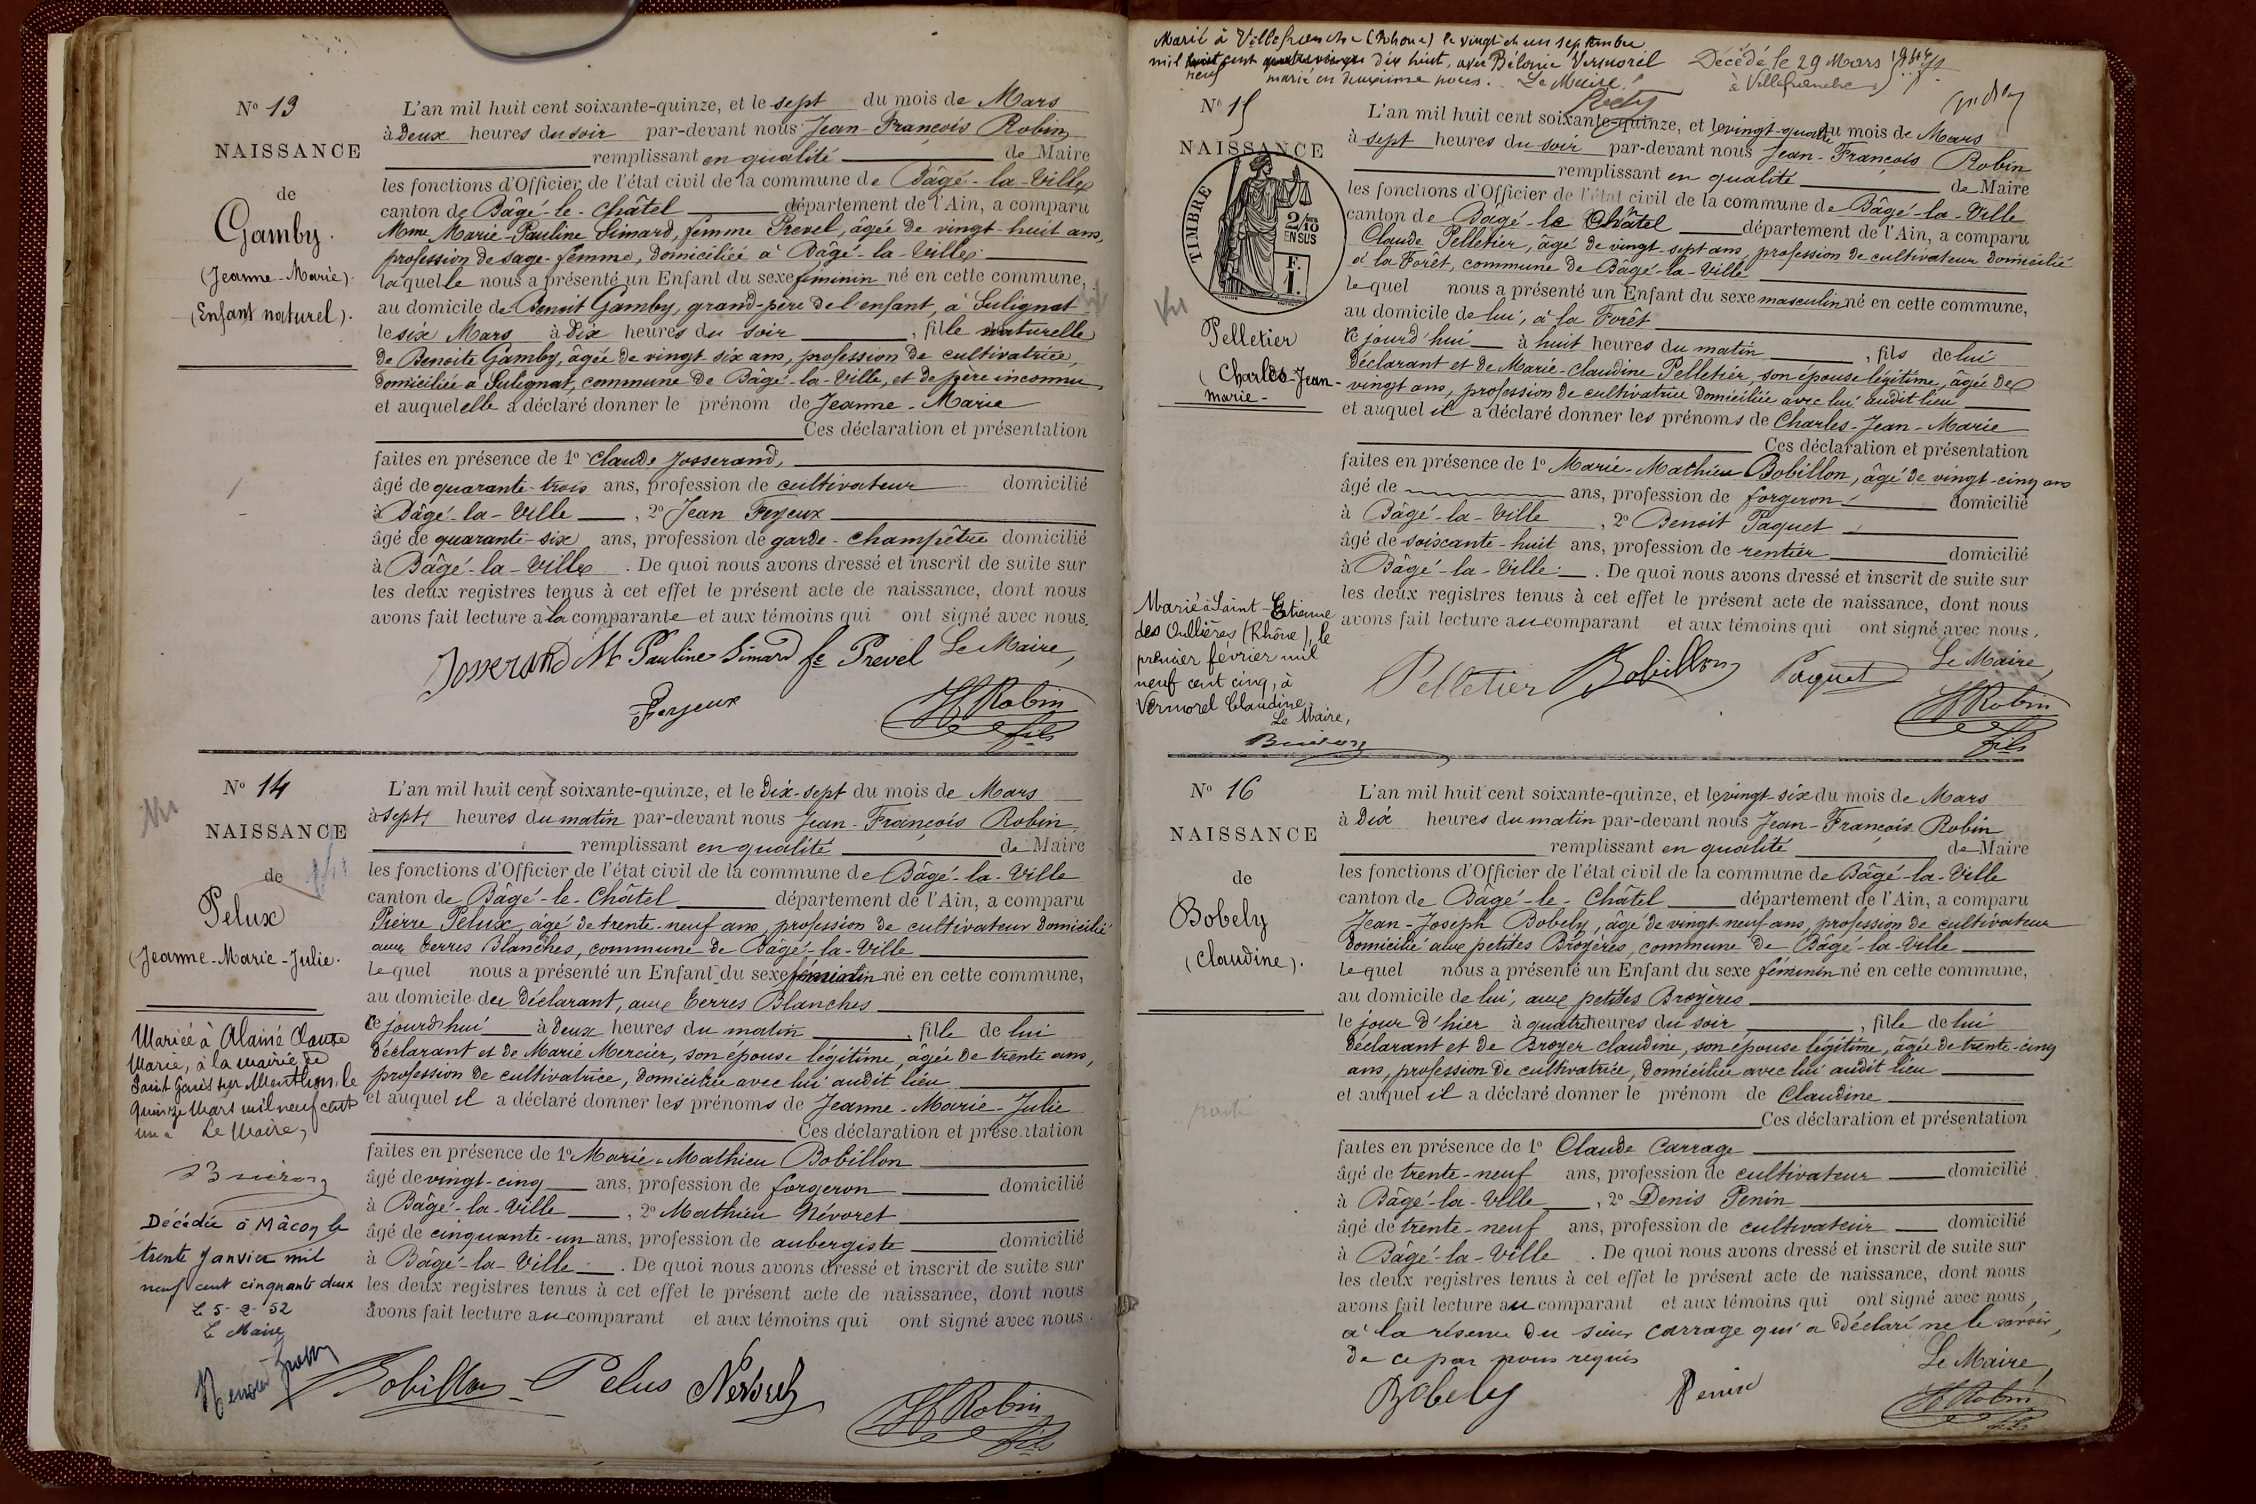 N° 13
NAISSANCE
de
Gamby.
(Jeanne-Marie).
(Enfant naturel).
L'an mil huit cent soixante-quinze, et le sept du mois de Mars
à Deux heures du soir par-devant nous Jean-François Robin
remplissant en qualité de Maire
les fonctions d'Officier de l'état civil de la commune de Bâgé-la-Ville
canton de Bâgé-le-Châtel département de l'Ain, a comparu
Mme Marie-Pauline Simard, femme Prevel, âgée de vingt-huit ans,
profession de sage-femme, domiciliée à Bâgé-la-Ville
laquelle nous a présenté un Enfant du sexe féminin né en cette commune,
au domicile de Benoit Gamby, grand-père de l'enfant, à Sulignat
le six Mars à Dix heures du soir , fille naturelle
de Benoite Gamby, âgée de vingt-six ans, profession de cultivatrice,
domiciliée à Sulignat, commune de Bâgé-la-Ville, et de père inconnu
et auquel elle a déclaré donner le prénom de Jeanne-Marie
Ces déclaration et présentation
faites en présence de 1° Claude Josserand,
âgé de quarante-trois ans, profession de cultivateur domicilié
à Bâgé-la-Ville , 2° Jean Feyeux
âgé de quarante-six ans, profession de garde-champêtre domicilié
à Bâgé-la-Ville . De quoi nous avons dressé et inscrit de suite sur
les deux registres tenus à cet effet le présent acte de naissance, dont nous
avons fait lecture à la comparante et aux témoins qui ont signé avec nous.
Josserand M Pauline Simard fe Prevel Le Maire,
Feyeux
Robin
fils
N° 14
NAISSANCE
de
Pelux
(Jeanne-Marie-Julie.
Mariée à Alainé Claude
Marie, à la mairie de
Saint Genis sur Menthon, le
quinze Mars mil neuf cent
un. Le Maire,
Décédée à Mâcon le
trente janvier mil
neuf cent cinquante deux
Le 5-2-52
Le Maire
L'an mil huit cent soixante-quinze, et le Dix-sept du mois de Mars
à sept heures du matin par-devant nous Jean-François Robin
remplissant en qualité de Maire
les fonctions d'Officier de l'état civil de la commune de Bâgé-la-Ville
canton de Bâgé-le-Châtel département de l'Ain, a comparu
Pierre Pelux, âgé de trente-neuf ans, profession de cultivateur domicilié
aux Terres Blanches, commune de Bâgé-la-Ville
lequel nous a présenté un Enfant du sexe féminin né en cette commune,
au domicile du Déclarant, aux Terres Blanches
ce jourd'hui à deux heures du matin , fille de lui
Déclarant et de Marie Mercier, son épouse légitime, âgée de trente ans,
profession de cultivatrice, domiciliée avec lui audit lieu
et auquel il a déclaré donner les prénoms de Jeanne-Marie-Julie
Ces déclaration et présentation
faites en présence de 1° Marie-Mathieu Bobillon
âgé de vingt-cinq ans, profession de forgeron domicilié
à Bâgé-la-Ville , 2° Mathieu Névoret
âgé de cinquante-un ans, profession de aubergiste domicilié
à Bâgé-la-Ville . De quoi nous avons dressé et inscrit de suite sur
les deux registres tenus à cet effet le présent acte de naissance, dont nous
avons fait lecture au comparant et aux témoins qui ont signé avec nous.
Bobillon Pelus Névoret
Robin
fils
Marié à Villefranche (Rhône) le vingt et un septembre
mil huit cent quatre vingt Dix huit, avec Vermorel
neuf marié en deuxième noces. Le Maire.
Décédé le 29 Mars
à Villefranche
N° 15
NAISSANCE
TIMBRE
2/10
EN SUS
F.
1.
Pelletier
(Charles-Jean-
Marie-
Marié à Saint-Etienne
des Oullières (Rhône), le
premier février mil
neuf cent cinq, à
Vermorel Claudine.
Le Maire,
L'an mil huit cent soixante-quinze, et le vingt-quatre du mois de Mars
à sept heures du soir par-devant nous Jean-François Robin
remplissant en qualité de Maire
les fonctions d'Officier de l'état civil de la commune de Bâgé-la-Ville
canton de Bâgé-le Châtel département de l'Ain, a comparu
Claude Pelletier, âgé de vingt-sept ans, profession de cultivateur domicilié
à la Forêt, commune de Bâgé-la-Ville
lequel nous a présenté un Enfant du sexe masculin né en cette commune,
au domicile de lui, à la Forêt
ce jourd'hui à huit heures du matin , fils de lui
Déclarant et de Marie-Claudine Pelletier, son épouse légitime, âgée de
vingt ans, profession de cultivatrice domiciliée avec lui audit lieu
et auquel il a déclaré donner les prénoms de Charles-Jean-Marie
Ces déclaration et présentation
faites en présence de 1° Marie-Mathieu Bobillon, âgé de vingt-cinq ans
âgé de ans, profession de forgeron domicilié
à Bâgé-la-Ville , 2° Benoit Paquet
âgé de soixante-huit ans, profession de rentier domicilié
à Bâgé-la-Ville . De quoi nous avons dressé et inscrit de suite sur
les deux registres tenus à cet effet le présent acte de naissance, dont nous
avons fait lecture au comparant et aux témoins qui ont signé avec nous.
Pelletier Bobillon Paquet Le Maire,
Robin
fils
N° 16
NAISSANCE
de
Bobely
(Claudine).
L'an mil huit cent soixante-quinze, et le vingt-six du mois de Mars
à Dix heures du matin par-devant nous Jean-François Robin
remplissant en qualité de Maire
les fonctions d'Officier de l'état civil de la commune de Bâgé-la-Ville
canton de Bâgé-le-Châtel département de l'Ain, a comparu
Jean-Joseph Bobely, âgé de vingt-neuf ans, profession de cultivateur
domicilié aux petites Broyères, commune de Bâgé-la-Ville
lequel nous a présenté un Enfant du sexe féminin né en cette commune,
au domicile de lui, aux petites Broyères
le jour d'hier à quatre heures du soir , fille de lui
Déclarant et de Broyer Claudine, son épouse légitime, âgée de trente-cinq
ans, profession de cultivatrice, domiciliée avec lui audit lieu
et auquel il a déclaré donner le prénom de Claudine
Ces déclaration et présentation
faites en présence de 1° Claude Carrage
âgé de trente-neuf ans, profession de cultivateur domicilié
à Bâgé-la-Ville , 2° Denis Penin
âgé de trente-neuf ans, profession de cultivateur domicilié
à Bâgé-la-Ville . De quoi nous avons dressé et inscrit de suite sur
les deux registres tenus à cet effet le présent acte de naissance, dont nous
avons fait lecture au comparant et aux témoins qui ont signé avec nous,
à la réserve du sieur Carrage qui a Déclaré ne le savoir,
de ce par nous requis
Le Maire,
Bobely Penin
Robin
fils